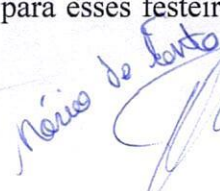 para esses festeir
Mário do Couto